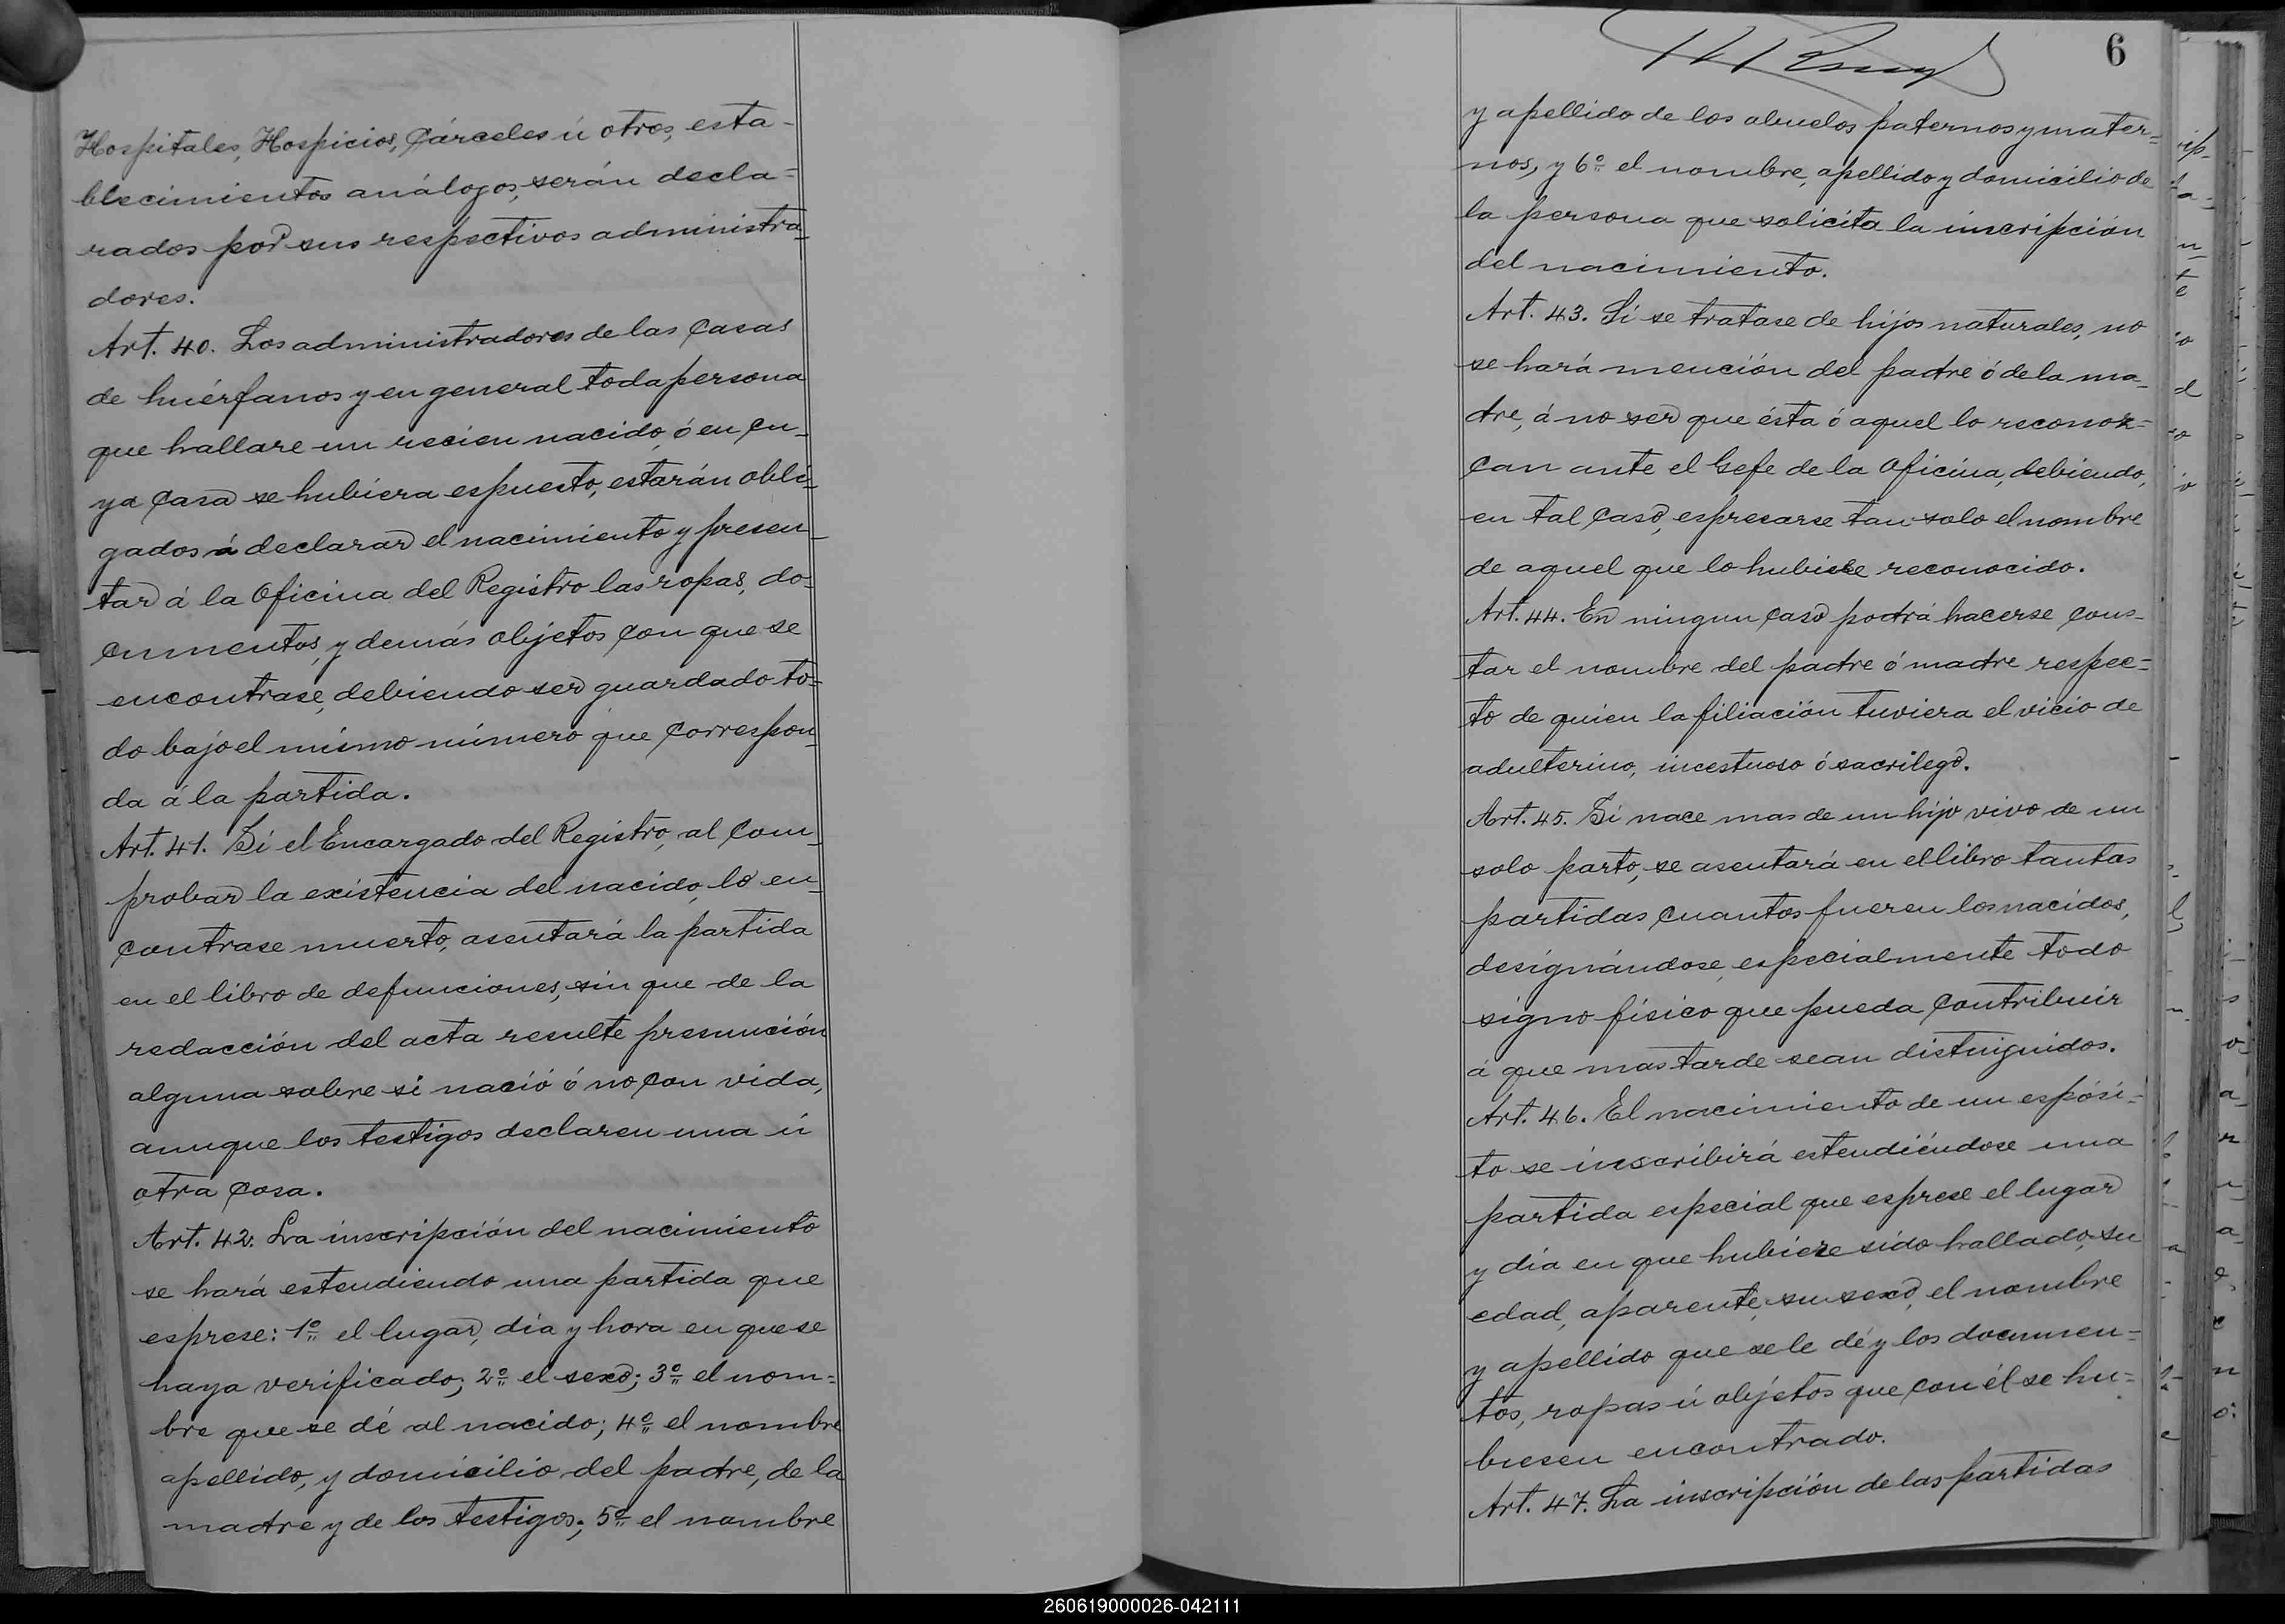 Hospitales, Hospicios, Cárceles ú otros, esta-
blecimientos análogos, serán decla=
rados por sus respectivos administra=
dores.
Art. 40. Los administradores de las casas
de huérfanos y en general toda persona
que hallare un recien nacido, ó en cu-
ya casa se hubiera espuesto, estarán obli-
gados á declarar el nacimiento y presen-
tar á la Oficina del Registro las ropas, do-
cumentos, y demás objetos con que se
encontrase, debiendo ser guardado to=
do bajo el mismo número que correspon-
da á la partida.
Art. 41. Si el Encargado del Registro, al com-
probar la existencia del nacido, lo en-
contrase muerto, asentará la partida
en el libro de defunciones, sin que de la
redacción del acta resulte presunción
alguna sobre si nació ó no con vida,
aunque los testigos declaren una ú
otra cosa.
Art. 42. La inscripción del nacimiento
se hará estendiendo una partida que
esprese: 1º el lugar, dia y hora en que se
haya verificado; 2º el sexo; 3º el nom=
bre que se dé al nacido; 4º el nombre
apellido, y domicilio del padre, de la
madre y de los testigos; 5º el nombre
6
y apellido de los abuelos paternos y mater=
nos, y 6º el nombre, apellido y domicilio de
la persona que solicita la inscripción
del nacimiento.
Art. 43. Si se tratase de hijos naturales, no
se hará mención del padre ó de la ma-
dre, á no ser que ésta ó aquel lo reconoz=
can ante el Gefe de la Oficina, debiendo,
en tal caso, espresarse tan solo el nombre
de aquel que lo hubiese reconocido.
Art. 44. En ningun caso podrá hacerse cons-
tar el nombre del padre ó madre respec=
to de quien la filiación tuviera el vicio de
adulterino, incestuoso ó sacrilego.
Art. 45. Si nace mas de un hijo vivo de un
solo parto, se asentará en el libro tantas
partidas, cuantos fueren los nacidos,
designándose, especialmente todo
signo físico que pueda contribuir
á que mas tarde sean distinguidos.
Art. 46. El nacimiento de un espósi-
to se inscribirá estendiéndose una
partida especial que esprese el lugar
y dia en que hubiere sido hallado, su
edad, aparente, su sexo, el nombre
y apellido que se le dé y los documen=
tos, ropas ú objetos que con él se hu=
biesen encontrado.
Art. 47. La inscripción de las partidas
260619000026-042111